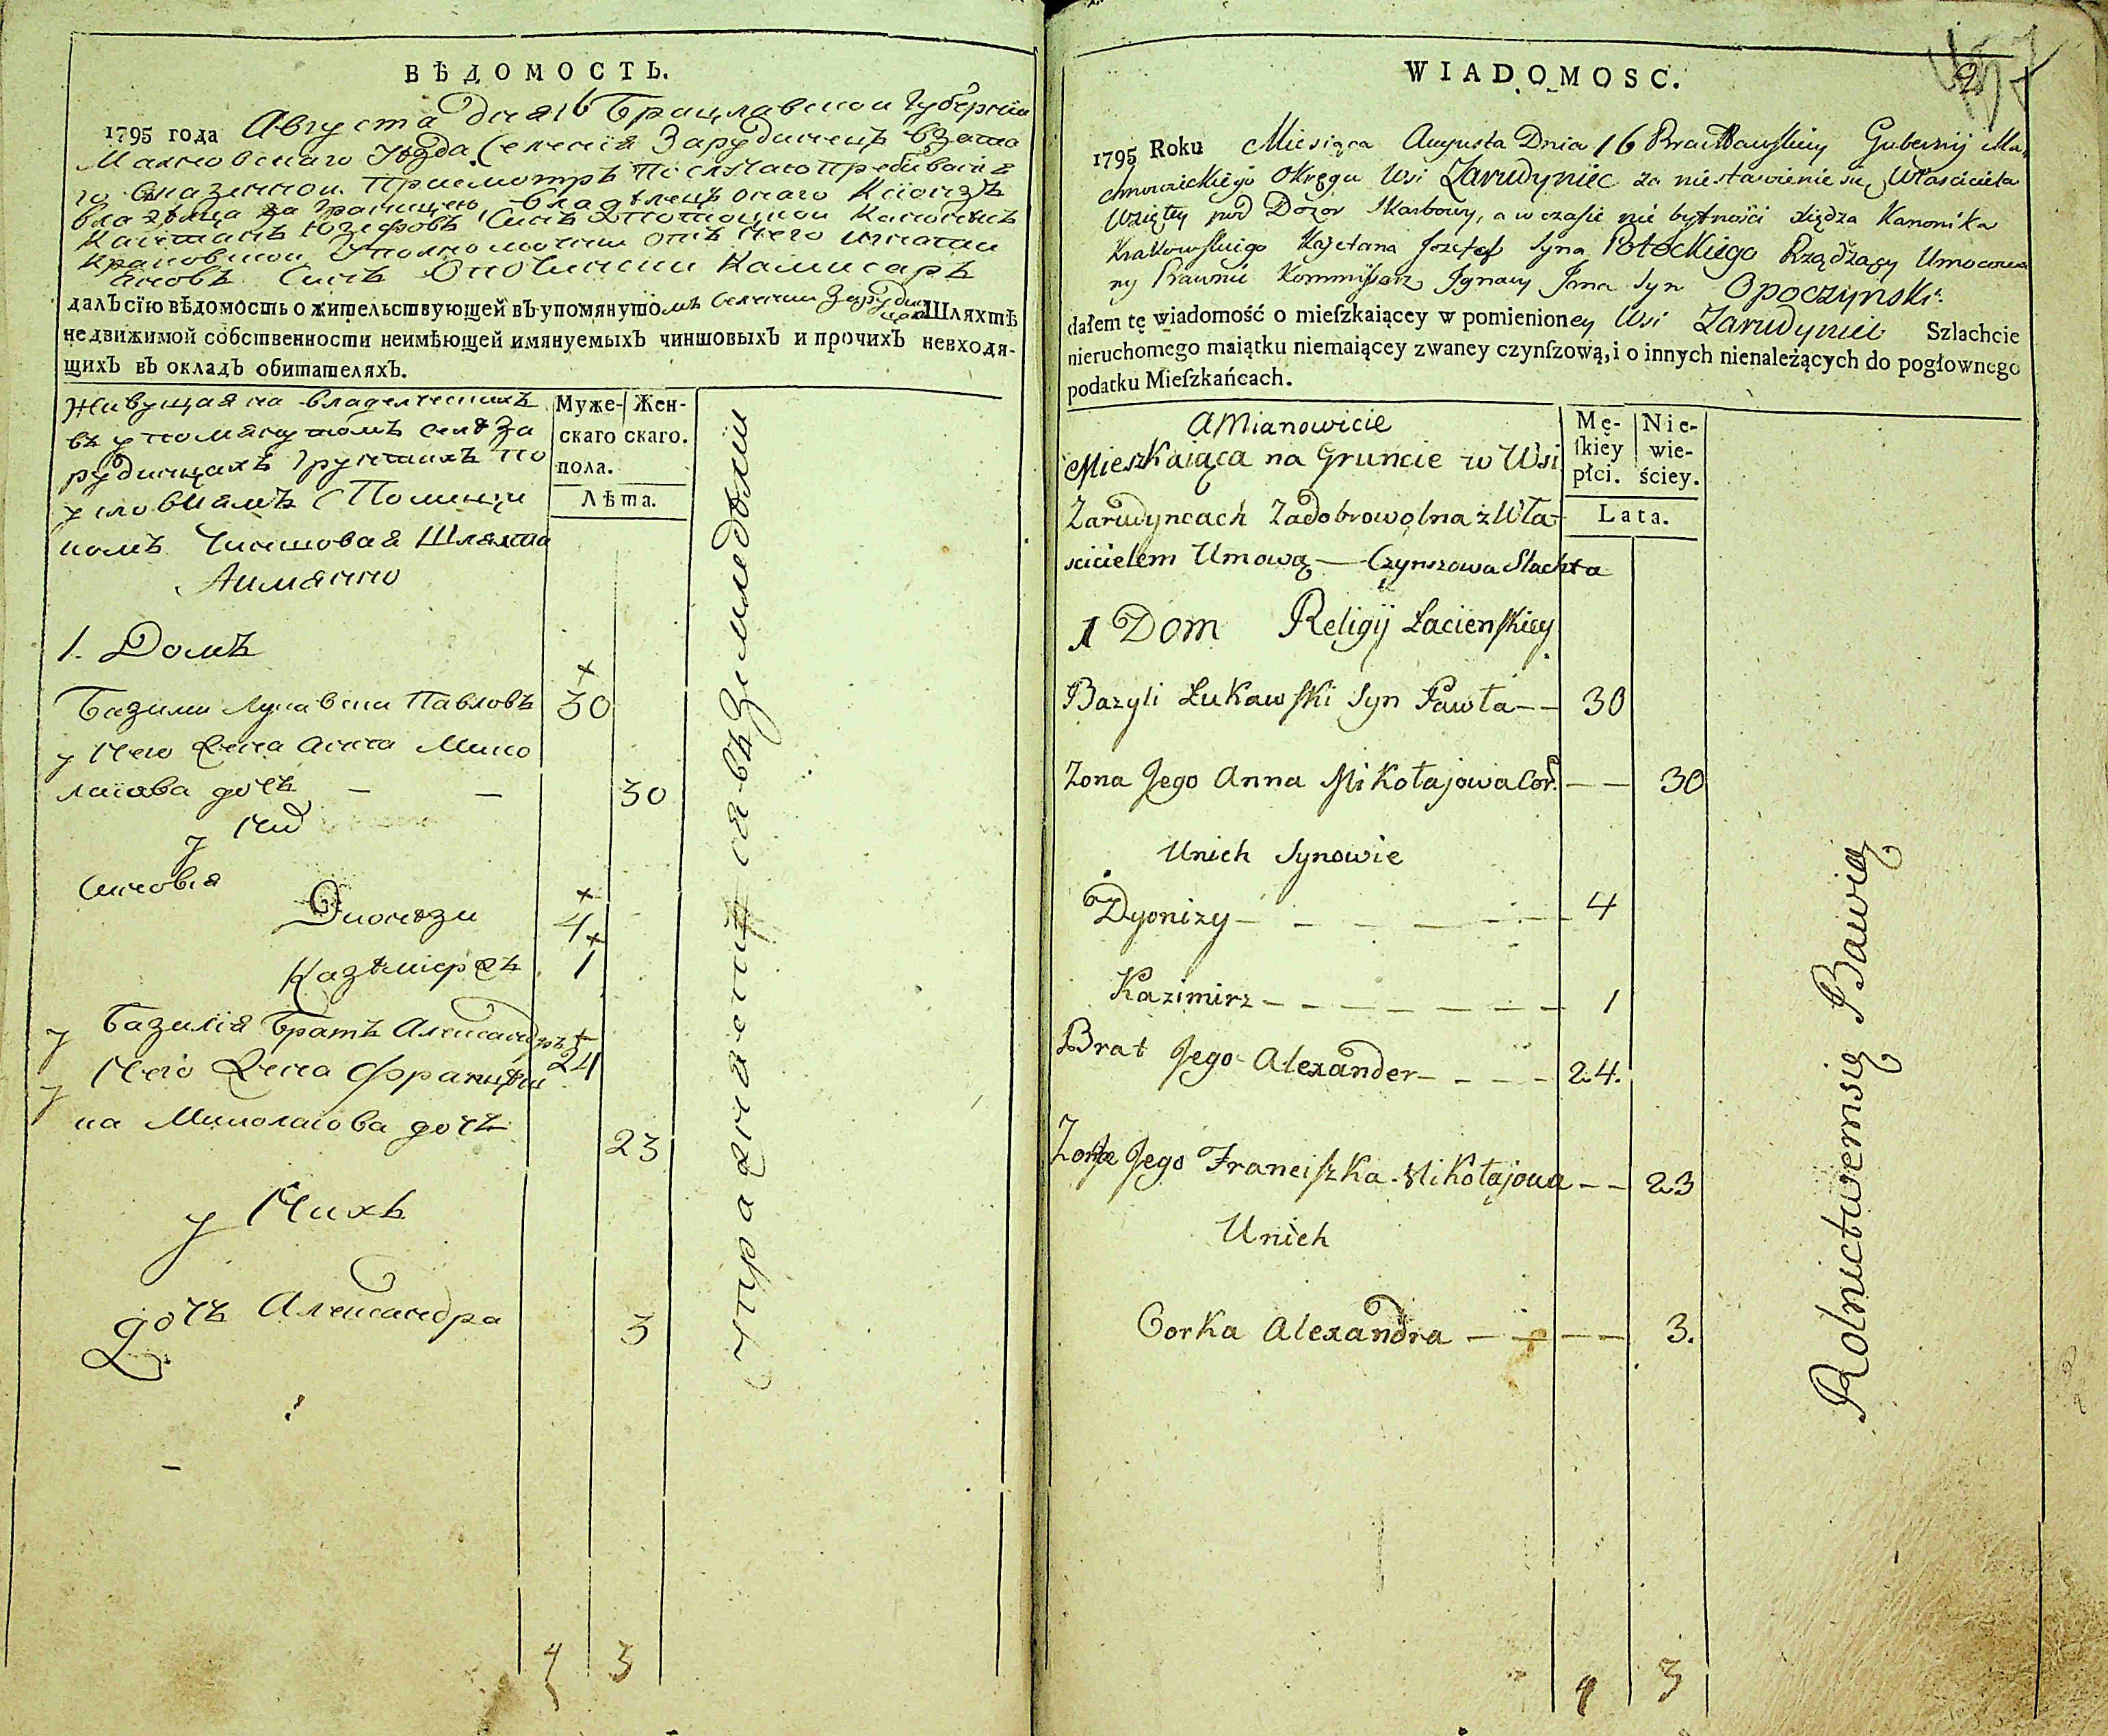 ВѢДОМОСТЬ.
1795 года Августа дня 16 Брацлавской Губернїи
Махновскаго уѣзда Селенія Зарудинецъ взято
го въ казенной присмотръ
владѣлца за границею владѣлецъ онаго
Каетанъ Юзефовъ Сынъ
уполномоченни отъ него игнатїи
Яновъ Синъ Опочински Камисаръ
далъ сїю вѣдомость о жительствующей въ упомянутомъ селении Зарудинцахъ Шляхтѣ
недвижимой собственности неимѣющей имянуемыхъ чиншовыхъ и прочихъ невходя-
щихъ въ окладъ обитателяхъ.
Живущая на владелческихъ
въ упомянутомъ селѣ За
рудинцахъ грунтахъ по
условиямъ с Помещи
комъ Чиншовая Шляхта
Аимянно
Муже- Жен-
скаго скаго.
пола.
Лѣта.
1. Домъ
Базили Лукавски Павловъ 30
у Него Жена Анна Мико
лаіова дочъ — — 30
у Них
Синовья
Дионизи 4
Казѣмержъ 1
у Базилія Братъ Александръ 24
у Него Жена Францѣш
ка Миколаіова дочъ 23
у Нихъ
дочъ Александра 3
4 3
WIADOMOSC.
2
1795 Roku Miesiąca Augusta Dnia 16 Bracławskiey Gubernij Ma,
chnowickiego Okręgu Wsi Zarudyniec za niestawienie się Właściciela
Wziętey pod Dozor Skarbowy, a w czasie nie bytności Xiędza Kanonika
Krakowskiego Kajetana Jozefa Syna Potockiego Rządzący Umocowa
ny Prawnie Kommissarz Ignacy Jana Syn Opoczynski.
dałem tę wiadomość o mieſzkaiącey w pomienioney Wsi Zarudyniec Szlachcie
nieruchomego maiątku niemaiącey zwaney czynſzową, i o innych nienależących do pogłownego
podatku Mieſzkańcach.
AMianowicie
Mieszkaiąca na Gruncie w Wsi
Zarudyncach Zadobrowolna z Wła-
scicielem Umową — Czynszowa Slachta
Mę- Nie-
ſkiey wie-
płci. ściey.
Lata.
1 Dom Religij Łacienskiey
Bazyli Łukawski Syn Pawła — — 30
Zona Jego Anna Mikołajowa Cor. — — 30
Unich Synowie
Dyonizy — — — — — 4
Kazimirz — — — — — — 1
Brat Jego Alexander — — — — 24.
Zona Jego Franciſzka Mikołajowa — — 23
Unich
Corka Alexandra — — — — 3.
Rolnictwemsię Bawią
4 3